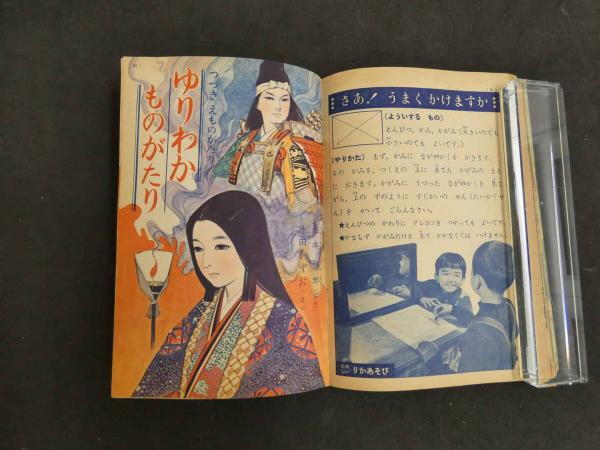 つづきえものがたり
ゆりわか
ものがたり
さあ！ うまく かけますか
(よういする もの)
えんぴつ、かみ、かがみ(大きいのでも
小さいのでも よいです。)
(やりかた) まず、かみに なが四かくを かきます。
その かみを、つくえの 上に 立てた かがみの まえ
に おきます。かがみに うつった ながい四かくを 見な
がら、上の ずのように すじかいの せん(たいかくせ
ん)を かいて ごらんなさい。
★えんぴつの かわりに クレヨンを つかっても よいです。
★かならず かがみだけを 見て かかなくては いけません。
たのしい りかあそび